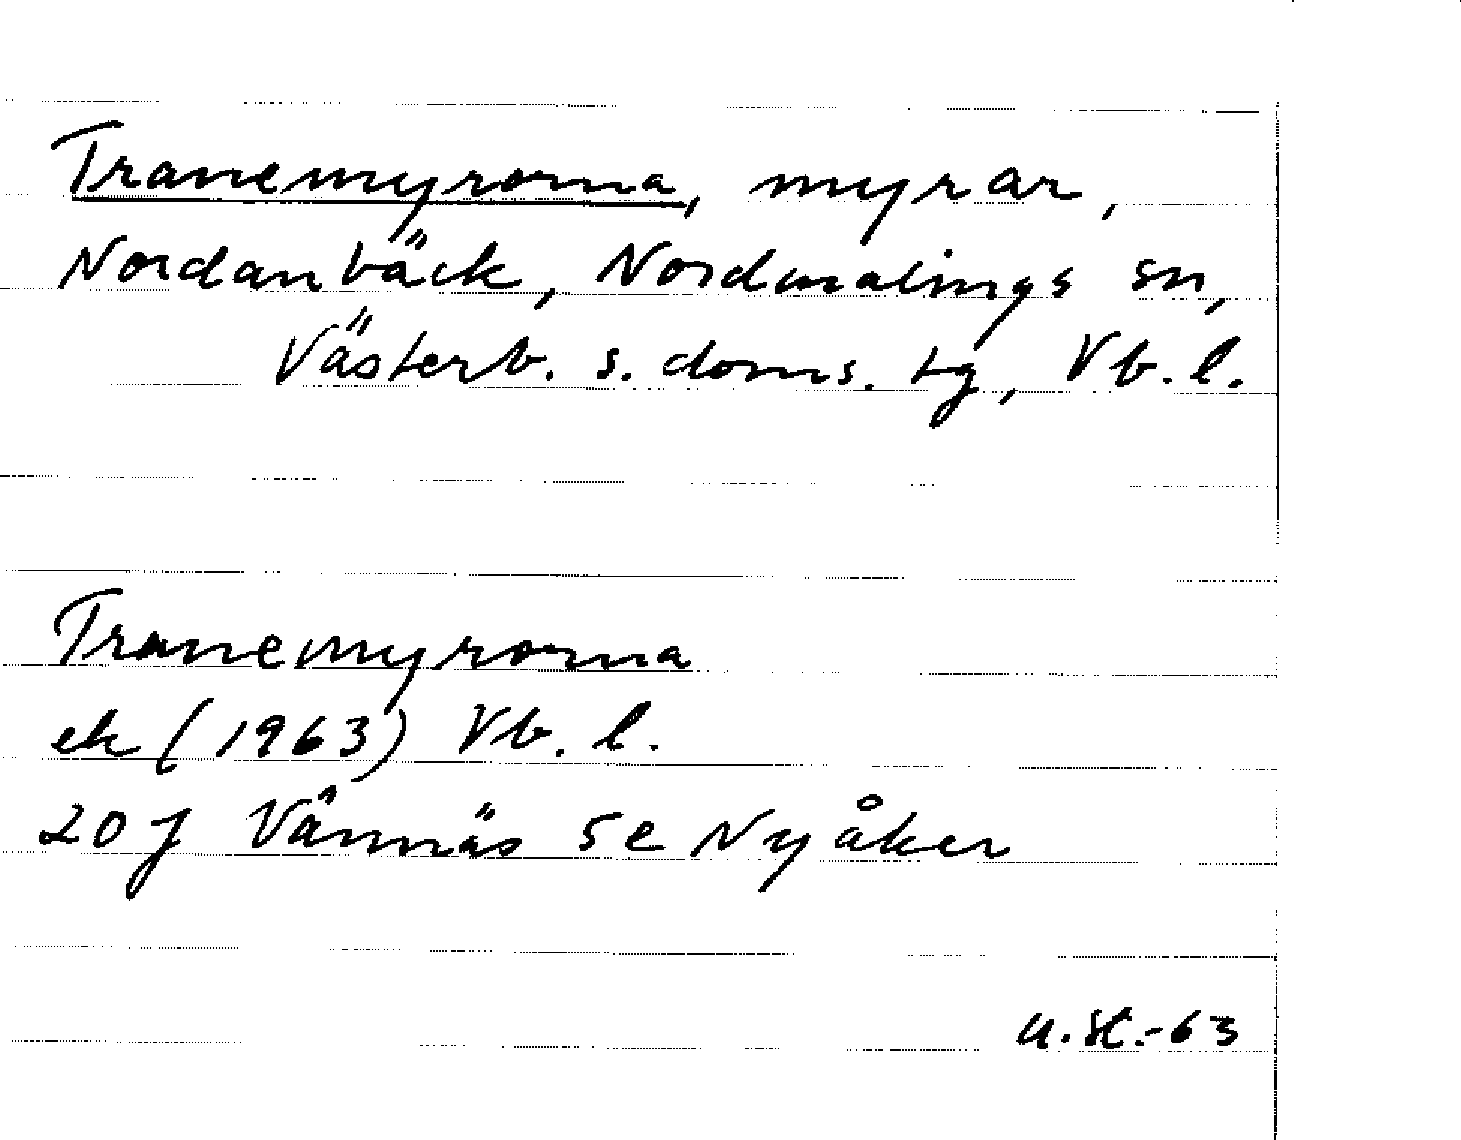 Tranemyrorna, myrar,
Nordanbäck, Nordmalings sn,
Västerb. s. doms. tg, Vb. l.
Tranemyrorna
ek (1963) Vb. l.
20 J Vännäs 5e Nyåker
U.St.-63